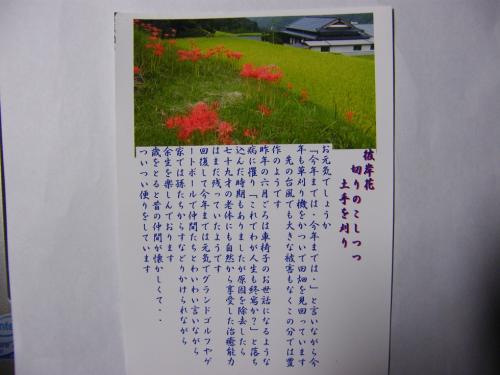 彼岸花
切りのこしつつ
土手を刈り
お元気でしょうか
「今年までは・今年までは・」と言いながら今
年も草刈り機をかついで田畑を見回っています
先の台風でも大きな被害もなくこの分では豊
作のようです
昨年の六月ごろは車椅子のお世話になるような
病に罹り「これでわが人生も終焉か？」と落ち
込んだ時期もありましたが原因を除去したら
七十九才の老体にも自然から享受した治癒能力
はまだ残っていたようです
回復して今年までは元気でグランドゴルフやゲ
ートボールで仲間たちとわいわい言いながら
家では孫たちからすなどりかけられながら
余生を楽しんでおります
歳をとると昔の仲間が懐かしくて・・
ついつい便りをしています